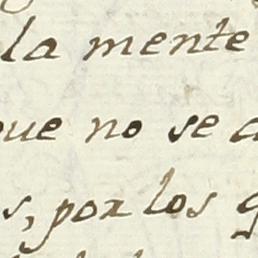 la mente
que no se
s, por los